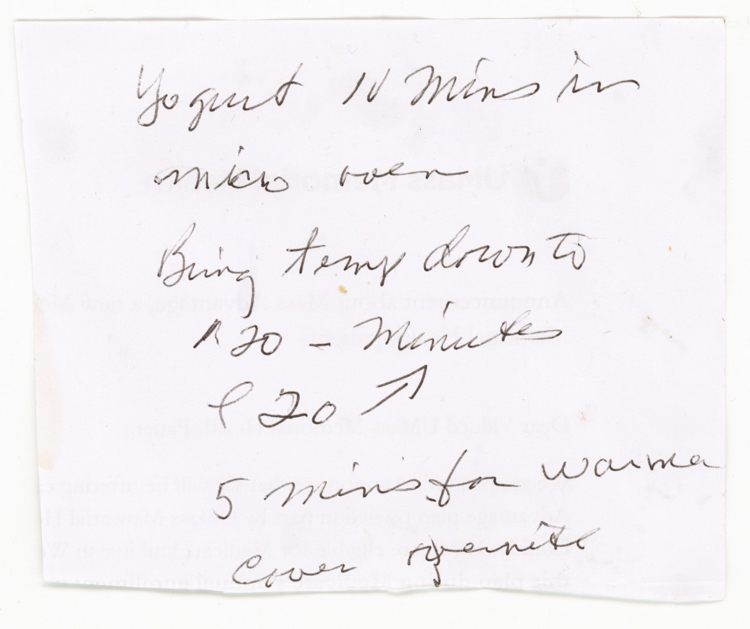 Yogurt 10 Mins in
micro oven
Bring temp down to
120 - Minutes
20 ↗
5 mins for warmer
Cover overnite